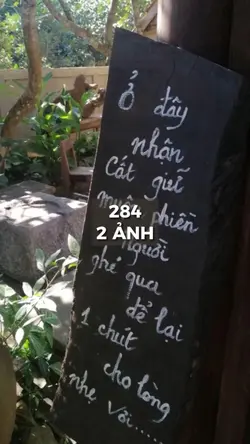 Ở đây
nhận
Cất giữ
muộn phiền
người
ghé qua
để lại
1 chút
cho lòng
nhẹ vơi...
284
2 ẢNH